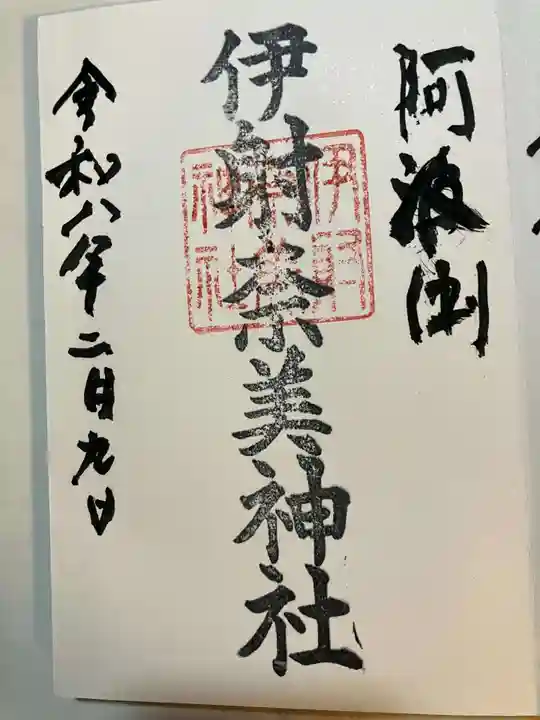 阿波国
伊射奈美神社
伊射奈美神社
令和八年二月九日